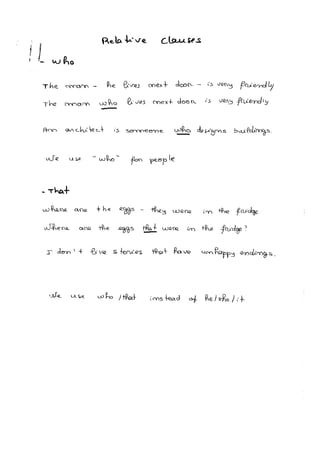 Relative clauses
- who
The man - he lives next door - is very friendly
The man who lives next door is very friendly
An architect is someone who designs buildings.
We use "who" for people
- That
where are the eggs - they were in the fridge
Where are the eggs that were in the fridge?
I don't like stories that have unhappy endings.
We use who / that instead of he / she / it